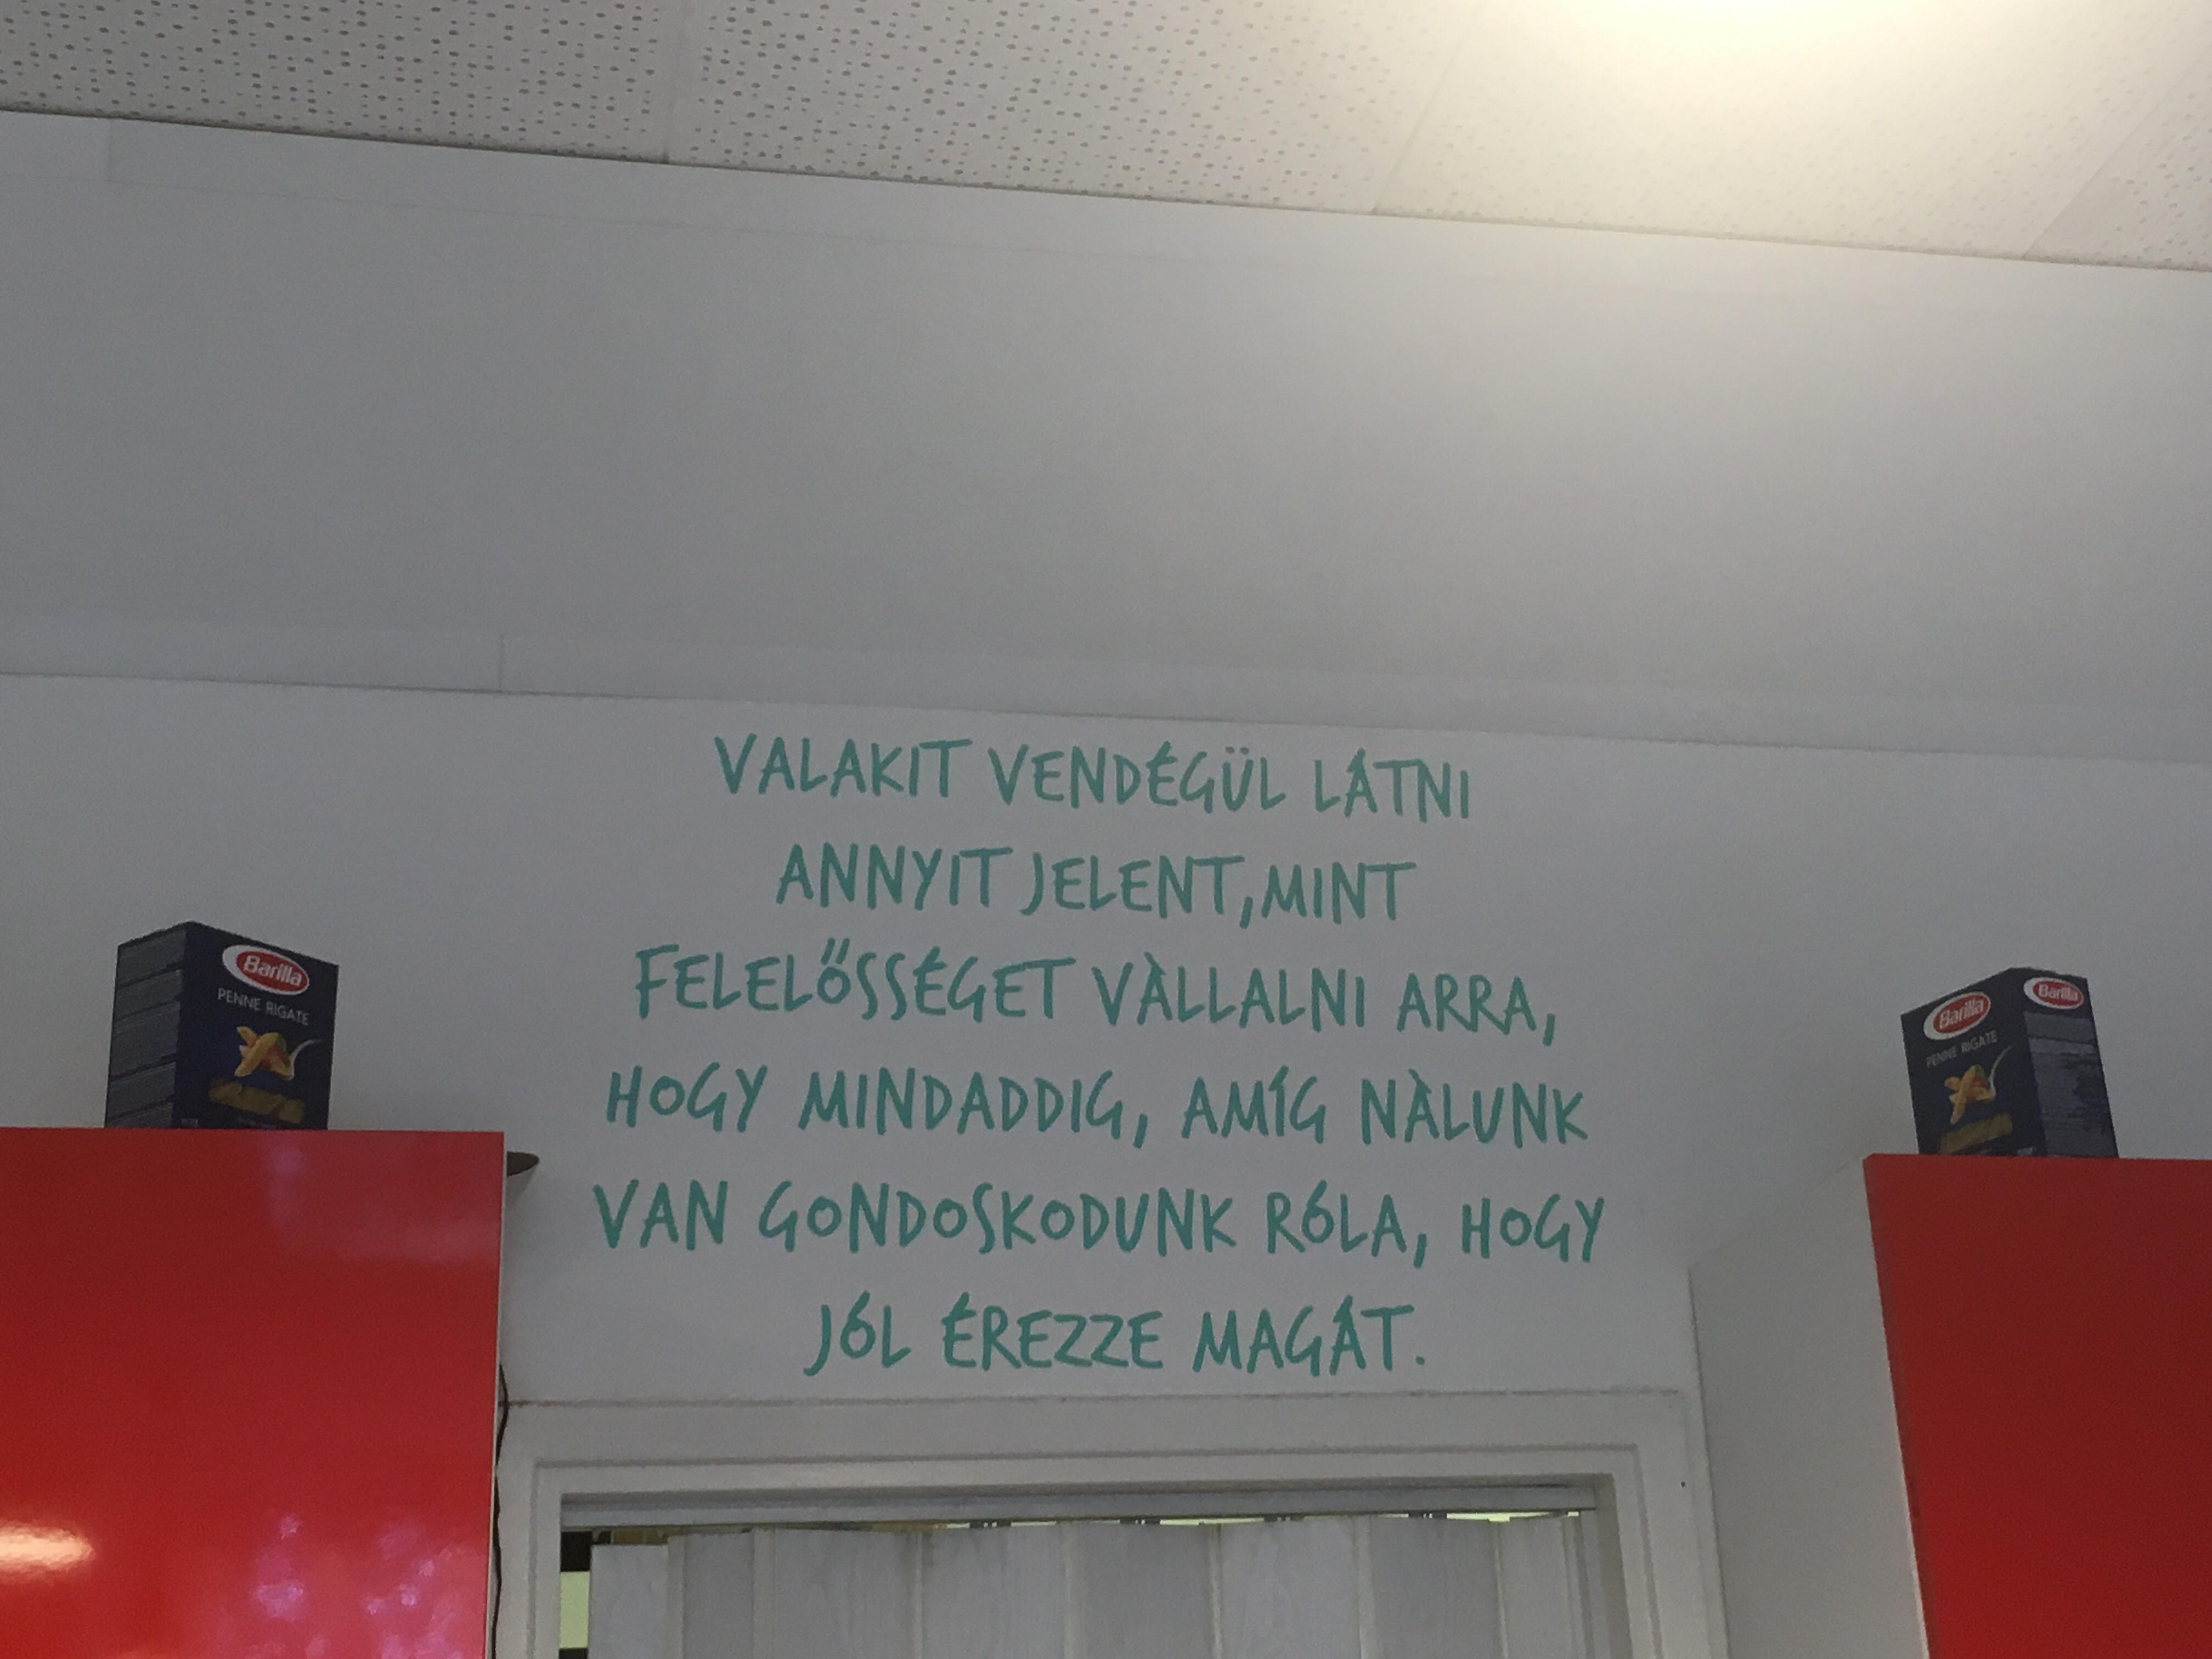 VALAKIT VENDÉGÜL LÁTNI
ANNYIT JELENT,MINT
FELELŐSSÉGET VÀLLALNI ARRA,
HOGY MINDADDIG, AMÍG NÀLUNK
VAN GONDOSKODUNK RÓLA, HOGY
JÓL ÉREZZE MAGÁT.
Barilla
PENNE RIGATE
Barilla
PENNE RIGATE
Barilla